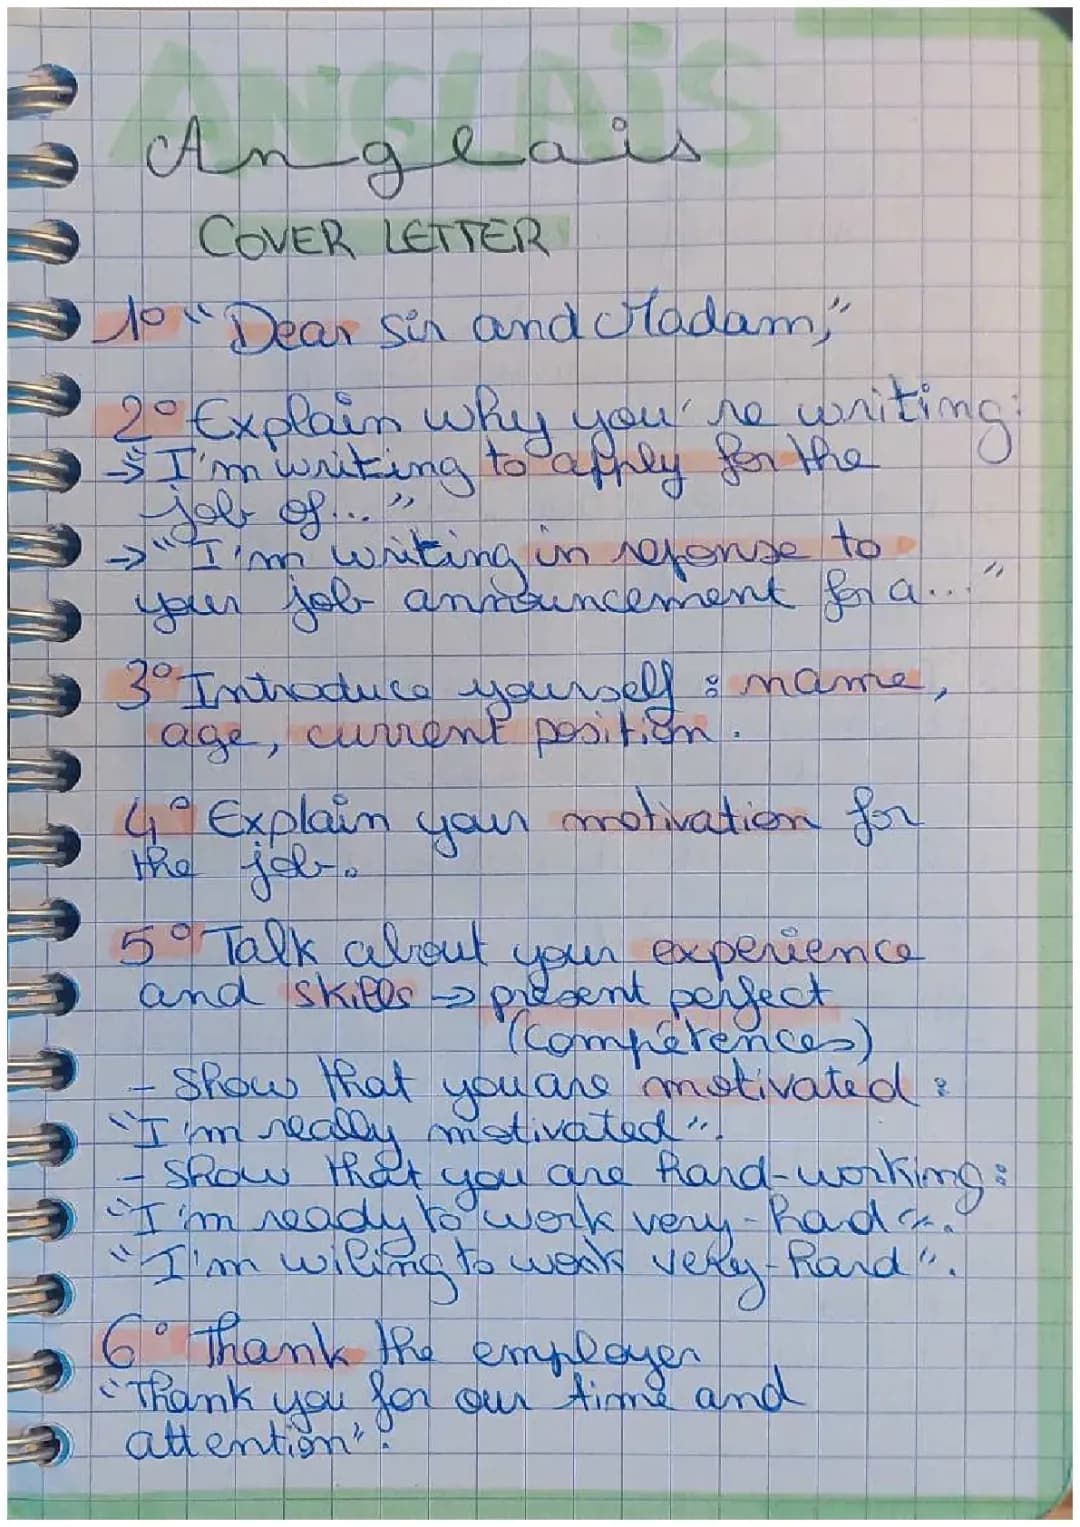 ANGLAIS
Anglais
COVER LETTER
1° "Dear Sir and Madam,"
2° Explain why you're writing:
→ "I'm writing to apply for the
job of..."
→ "I'm writing in reponse to
your job announcement for a..."
3° Introduce yourself : name,
age, current position.
4° Explain your motivation for
the job.
5° Talk about your experience
and skills → présent perfect
(compétences)
- Show that you are motivated :
"I'm really motivated".
- Show that you are hard-working :
"I'm ready to work very-hard".
"I'm wiling to work very-hard".
6° Thank the employer
"Thank you for our time and
attention".